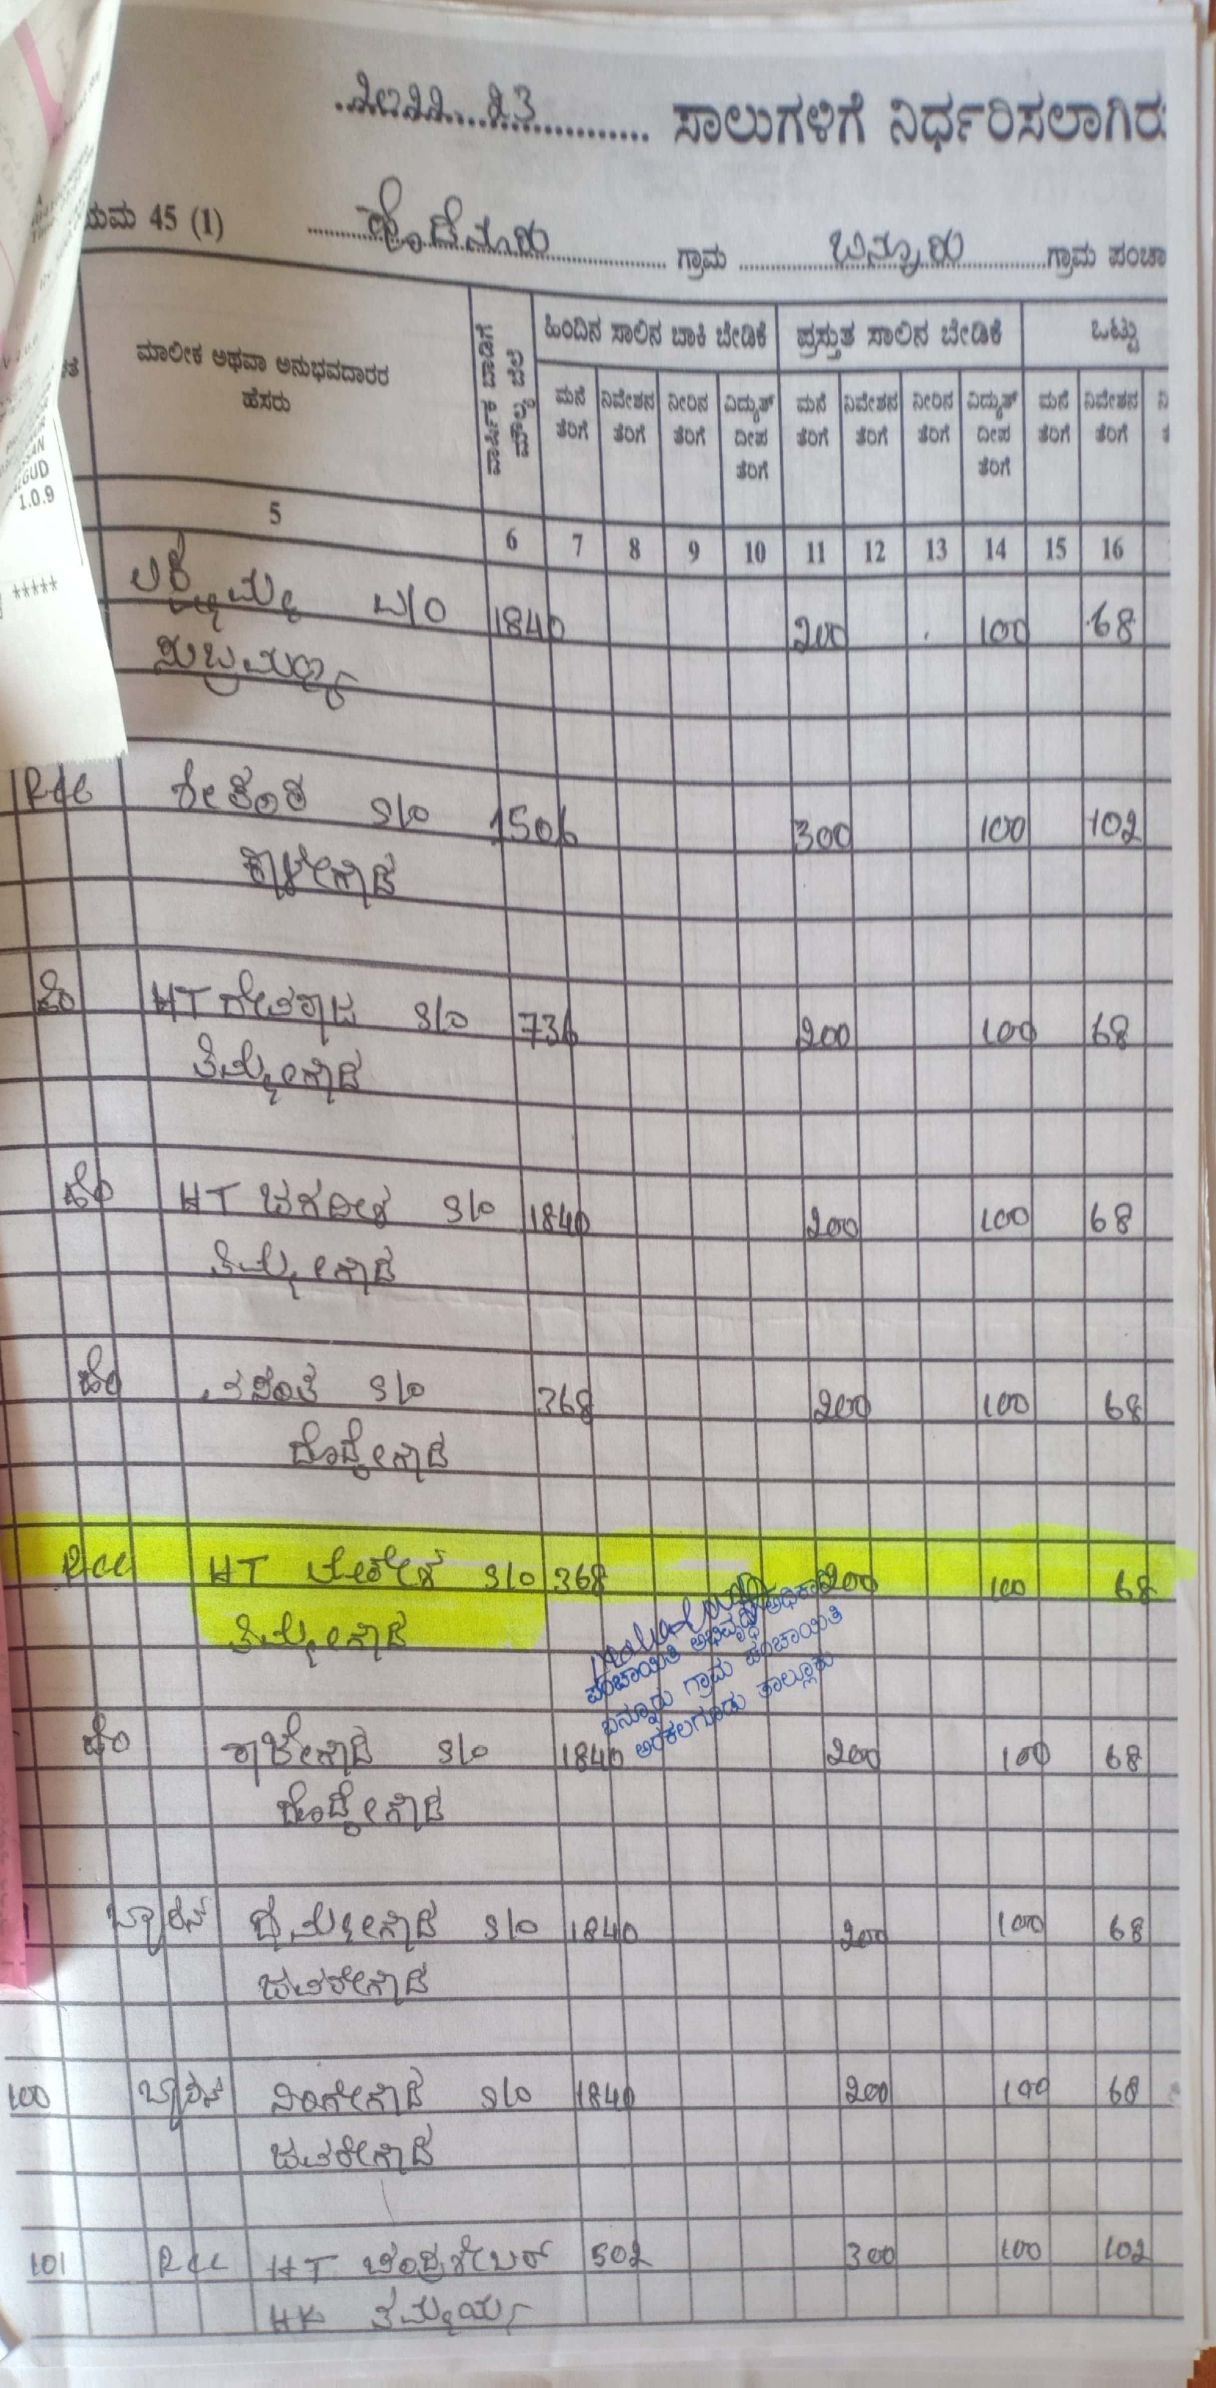 2022 23 ಸಾಲುಗಳಿಗೆ ನಿರ್ಧರಿಸಲಾಗಿರು
ಯಮ 45 (1) ಗ್ರಾಮ ಬನ್ನೂರು ಗ್ರಾಮ ಪಂಚಾ
ಮಾಲೀಕ ಅಥವಾ ಅನುಭವದಾರರ ಹೆಸರು
ವಾರ್ಷಿಕ ಬಾಡಿಗೆ ಮೌಲ್ಯ ಬೆಲೆ
ಹಿಂದಿನ ಸಾಲಿನ ಬಾಕಿ ಬೇಡಿಕೆ ಪ್ರಸ್ತುತ ಸಾಲಿನ ಬೇಡಿಕೆ ಒಟ್ಟು
ಮನೆ ತೆರಿಗೆ ನಿವೇಶನ ತೆರಿಗೆ ನೀರಿನ ತೆರಿಗೆ ವಿದ್ಯುತ್ ದೀಪ ತೆರಿಗೆ ಮನೆ ತೆರಿಗೆ ನಿವೇಶನ ತೆರಿಗೆ ನೀರಿನ ತೆರಿಗೆ ವಿದ್ಯುತ್ ದೀಪ ತೆರಿಗೆ ಮನೆ ತೆರಿಗೆ ನಿವೇಶನ ತೆರಿಗೆ
5 6 7 8 9 10 11 12 13 14 15 16
GUD
1.0.9
*****
ಲಕ್ಷ್ಮಮ್ಮ W/O 1840 200 100 68
ಸುಬ್ರಮಣ್ಯ
RCC S/O 1506 300 100 102
ಕಾಳೇಗೌಡ
ಹೆಂ HT S/O 736 200 100 68
ತಿಮ್ಮೇಗೌಡ
ಹೆಂ HT ಜಗದೀಶ S/O 1840 200 100 68
ತಿಮ್ಮೇಗೌಡ
ಹೆಂ S/O 368 200 100 68
ದೊಡ್ಡೇಗೌಡ
RCC HT S/O 368 200 100 68
ತಿಮ್ಮೇಗೌಡ
ಪಂಚಾಯಿತಿ ಅಭಿವೃದ್ಧಿ ಅಧಿಕಾರಿ
ಬನ್ನೂರು ಗ್ರಾಮ ಪಂಚಾಯಿತಿ
ಅರಕಲಗೂಡು ತಾಲ್ಲೂಕು
ಹೆಂ ರಾಜೇಗೌಡ S/O 1840 200 100 68
ದೊಡ್ಡೇಗೌಡ
S/O 1840 200 100 68
ಜವರೇಗೌಡ
100 ನಿಂಗೇಗೌಡ S/O 1840 200 100 68
ಜವರೇಗೌಡ
101 RCC HT ಚಂದ್ರಶೇಖರ್ 502 300 100 102
HK ತಮ್ಮಯ್ಯ